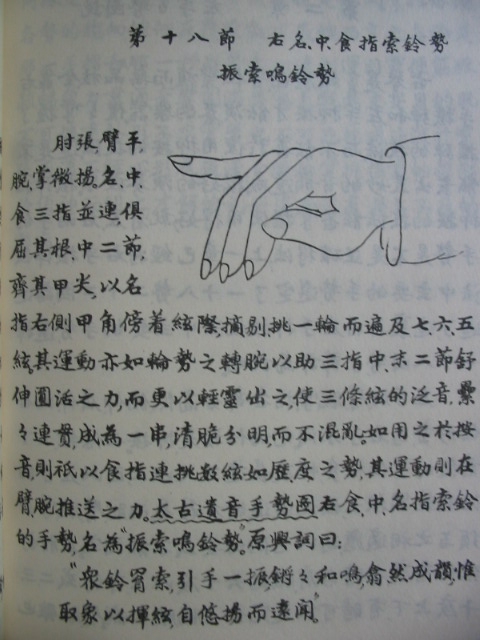 第十八節　右名、中、食指索鈴勢
振索鳴鈴勢
肘張臂平，
腕掌微揚。名、中、
食三指並連俱
屈其根中二節，
齊其甲尖，以名
指右側甲角傍着絃際，摘剔挑一輪而遍及七、六、五
絃其運動亦如輪勢之轉腕以助三指中、末二節舒
伸圓活之力，而更以輕靈出之使三條絃的泛音，纍
々連貫，成為一串，清脆分明，而不混亂。如用之於按
音，則祇以食指連挑數絃如歷度之勢，其運動則在
臂，腕推送之力。太古遺音手勢圖右食、中、名指索鈴
的手勢名為“振索鳴鈴勢。”原興詞曰：
“衆鈴罥索，引手一振，鏘々和鳴，翕然成韻，惟
取象以揮絃，自悠揚而遠聞。”